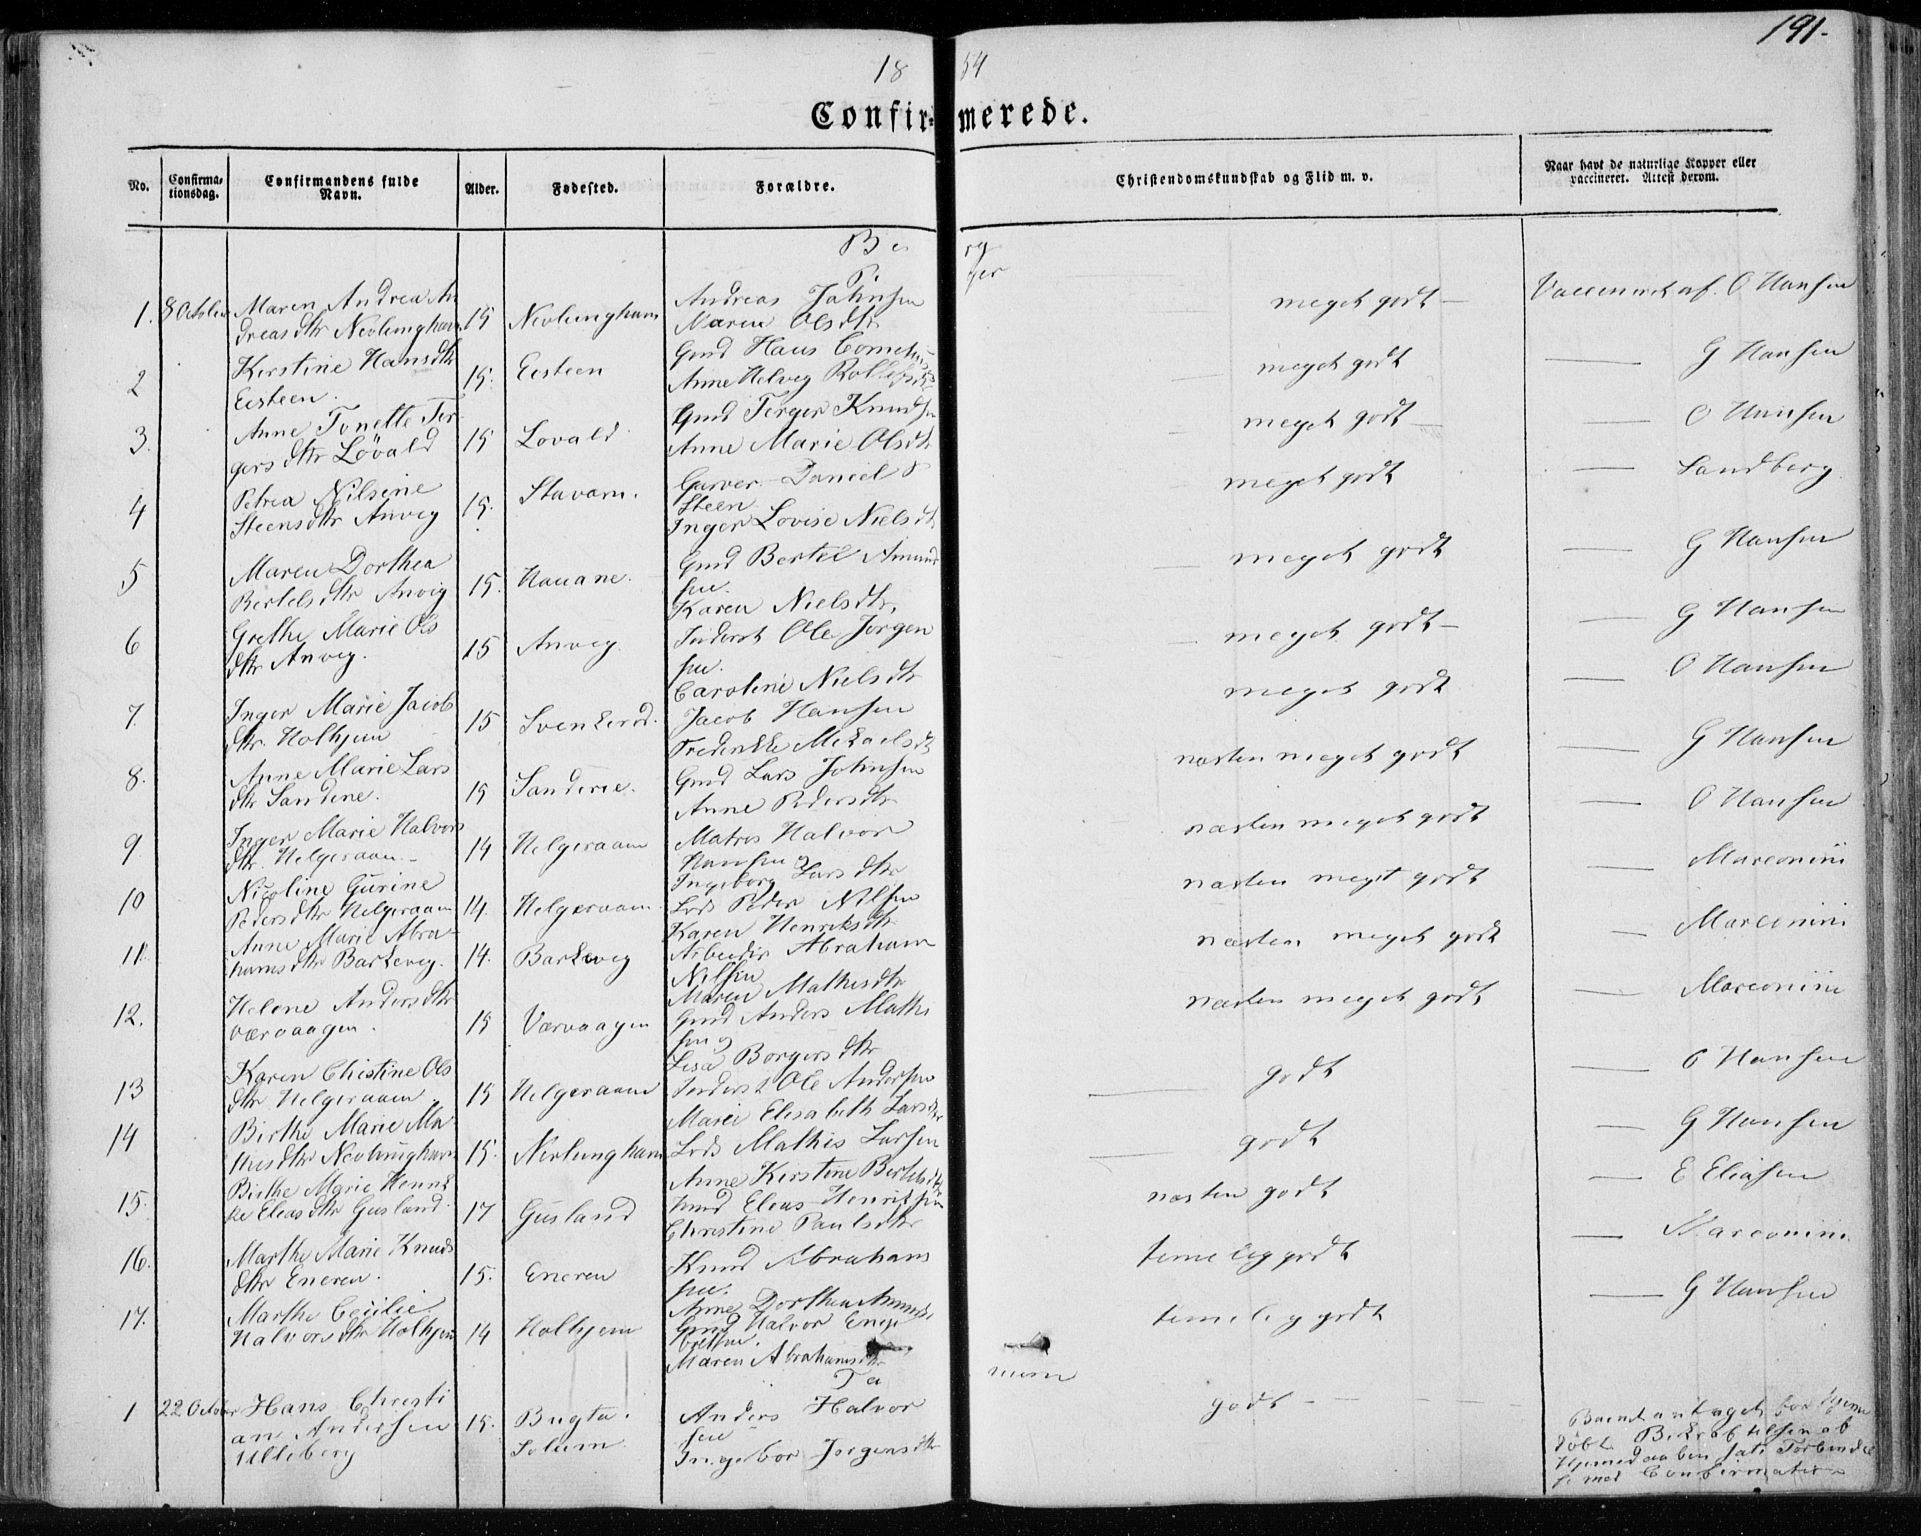 191.
1854
Confirmerede.
No.
Confirma-
tionsdag.
Confirmandens fulde
Navn.
Alder.
Fødested.
Forældre.
Christendomskundskab og Flid m. v.
Naar havt de naturlige Kopper eller
vaccineret. Attest derom.
Berg
Piger
1. 8 October Maren Andrea An
dreasdtr Nevlunghavn 15 Nevlunghavn Andreas Johnsen
Maren Olsdtr meget godt Vaccineret af O Hansen
2 Kirstine Hansdtr
Eesteen. 15. Eesteen Gmd Hans
Anne Helvig meget godt — G Hansen
3. Anne Tonette Ter
gersdtr Løvald 15 Lovald Gmd Terger Knudsen
Anne Marie Olsdtr meget godt — O Hansen
4 Petrea Nilsine
Steensdtr Anvig 15. Stavarn. Garver Daniel
Steen
Inger Lovise Nielsdt meget godt — Sandberg
5 Maren Dorthea
Bertelsdtr Anvig 15. Hauane. Gmd Bertel Amund
sen.
Karen Nielsdtr. meget godt — G Hansen
6 Grethe Marie Ols
dtr Anvig. 15 Anveg. Inderst Ole Jørgen
sen.
Caroline Nielsdtr meget godt — G Hansen
7 Inger Marie Jacob
dtr. Holtjem 15 Jacob Hansen
Fredrikke Mikaelsdt meget godt — O Hansen
8. Anne Marie Lars
dtr Sandene. 15 Sandene. Gmd Lars Johnsen
Anne Pedersdtr næsten meget godt — G Hansen
9. Inger Marie Halvors
dtr. Helgeraaen 14 Helgeraaen Matros Halvor
Hansen og
Ingeborg Larsdtr næsten meget godt — O Hansen
10 Nicoline Gurine
Pedersdtr Helgeraaen 14. Helgeraaen Lods Peder Nilsen
Karen Henriksdtr næsten meget godt — Marconini
11. Anne Marie Abra
hamsdtr Barkevig. 14. Barkevig Arbeider Abraham
Nilsen
Maren Mathisdtr næsten meget godt — Marconini
12. Helene Andersdtr
Værvaagen. 15 Værvaagen Gmd Anders Mathi
sen og
Lisa Borgersdtr næsten meget godt — Marconini
13 Karen Christine Ols
dtr Helgeraaen 15 Helgeraaen Inderst Ole Andersen
Marie Elisabeth Larsdtr godt — O Hansen
14 Birthe Marie Ma
thisdtr Nevlunghavn 15. Nevlunghavn Lods Mathis Larsen
Anne Kirstine Bertelsdtr godt — G Hansen
15. Birthe Marie Henrik
ke Eliasdtr Gusland. 17 Gusland Gmd Elias Henriksen
Christine Paulsdtr næsten godt — E Eliasen
16. Marthe Marie Knuds
dtr Eneren. 15. Eneren Knud Abrahams
sen.
Anne Dorthea temelig godt — Marconini
17. Marthe Cecilie
Halvorsdtr Holtjem 14 Holtjem Gmd Halvor Enge
bretsen.
Maren Abrahamsdtr temelig godt — G Hansen
Tanum
1 22 October Hans Christi
an Andersen
Ulleberg 15. Bugta.
Solum. Anders Halvor
sen
Ingebor Jørgensdtr godt — Barnet antaget for hjemme
døbt. Bekræftelsen af
Hjemmedaaben sat i Forbindel
se med Confirmation